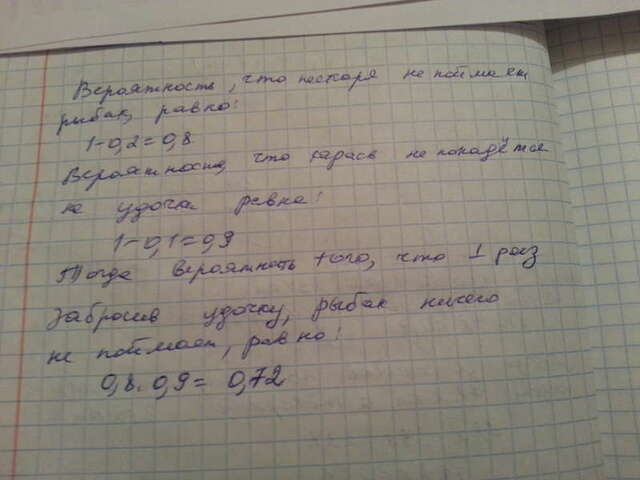 Вероятность, что пескаря не поймает
рыбак, равно:
1-0,2=0,8
Вероятность, что карась не попадётся
на удочку равна:
1-0,1=0,9
Тогда вероятность того, что 1 раз
забросив удочку, рыбак ничего
не поймает, равно:
0,8·0,9=0,72